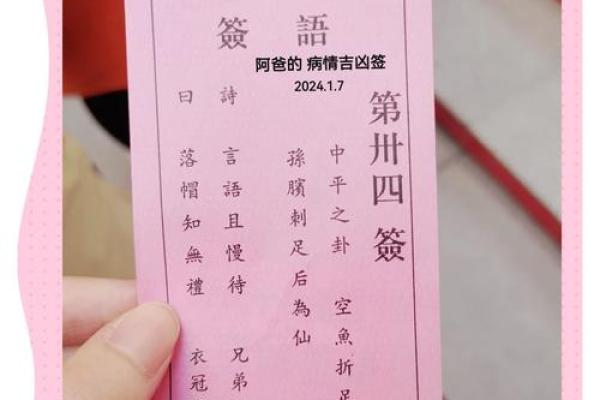 簽語
阿爸的 病情吉凶签
2024.1.7
第卅四簽
中平之卦 空魚折足
孫臏刺足后為仙
詩 言語且慢待 兄弟
曰 落帽知無禮 衣冠